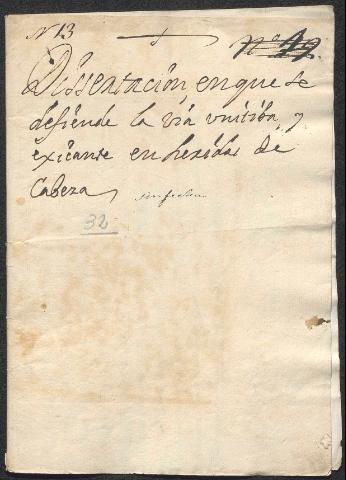 N 13
Nº 19
Dissertación, en que se
defiende la via vnitiba, y
exicante en heridas de
Cabeza
sin fecha
32